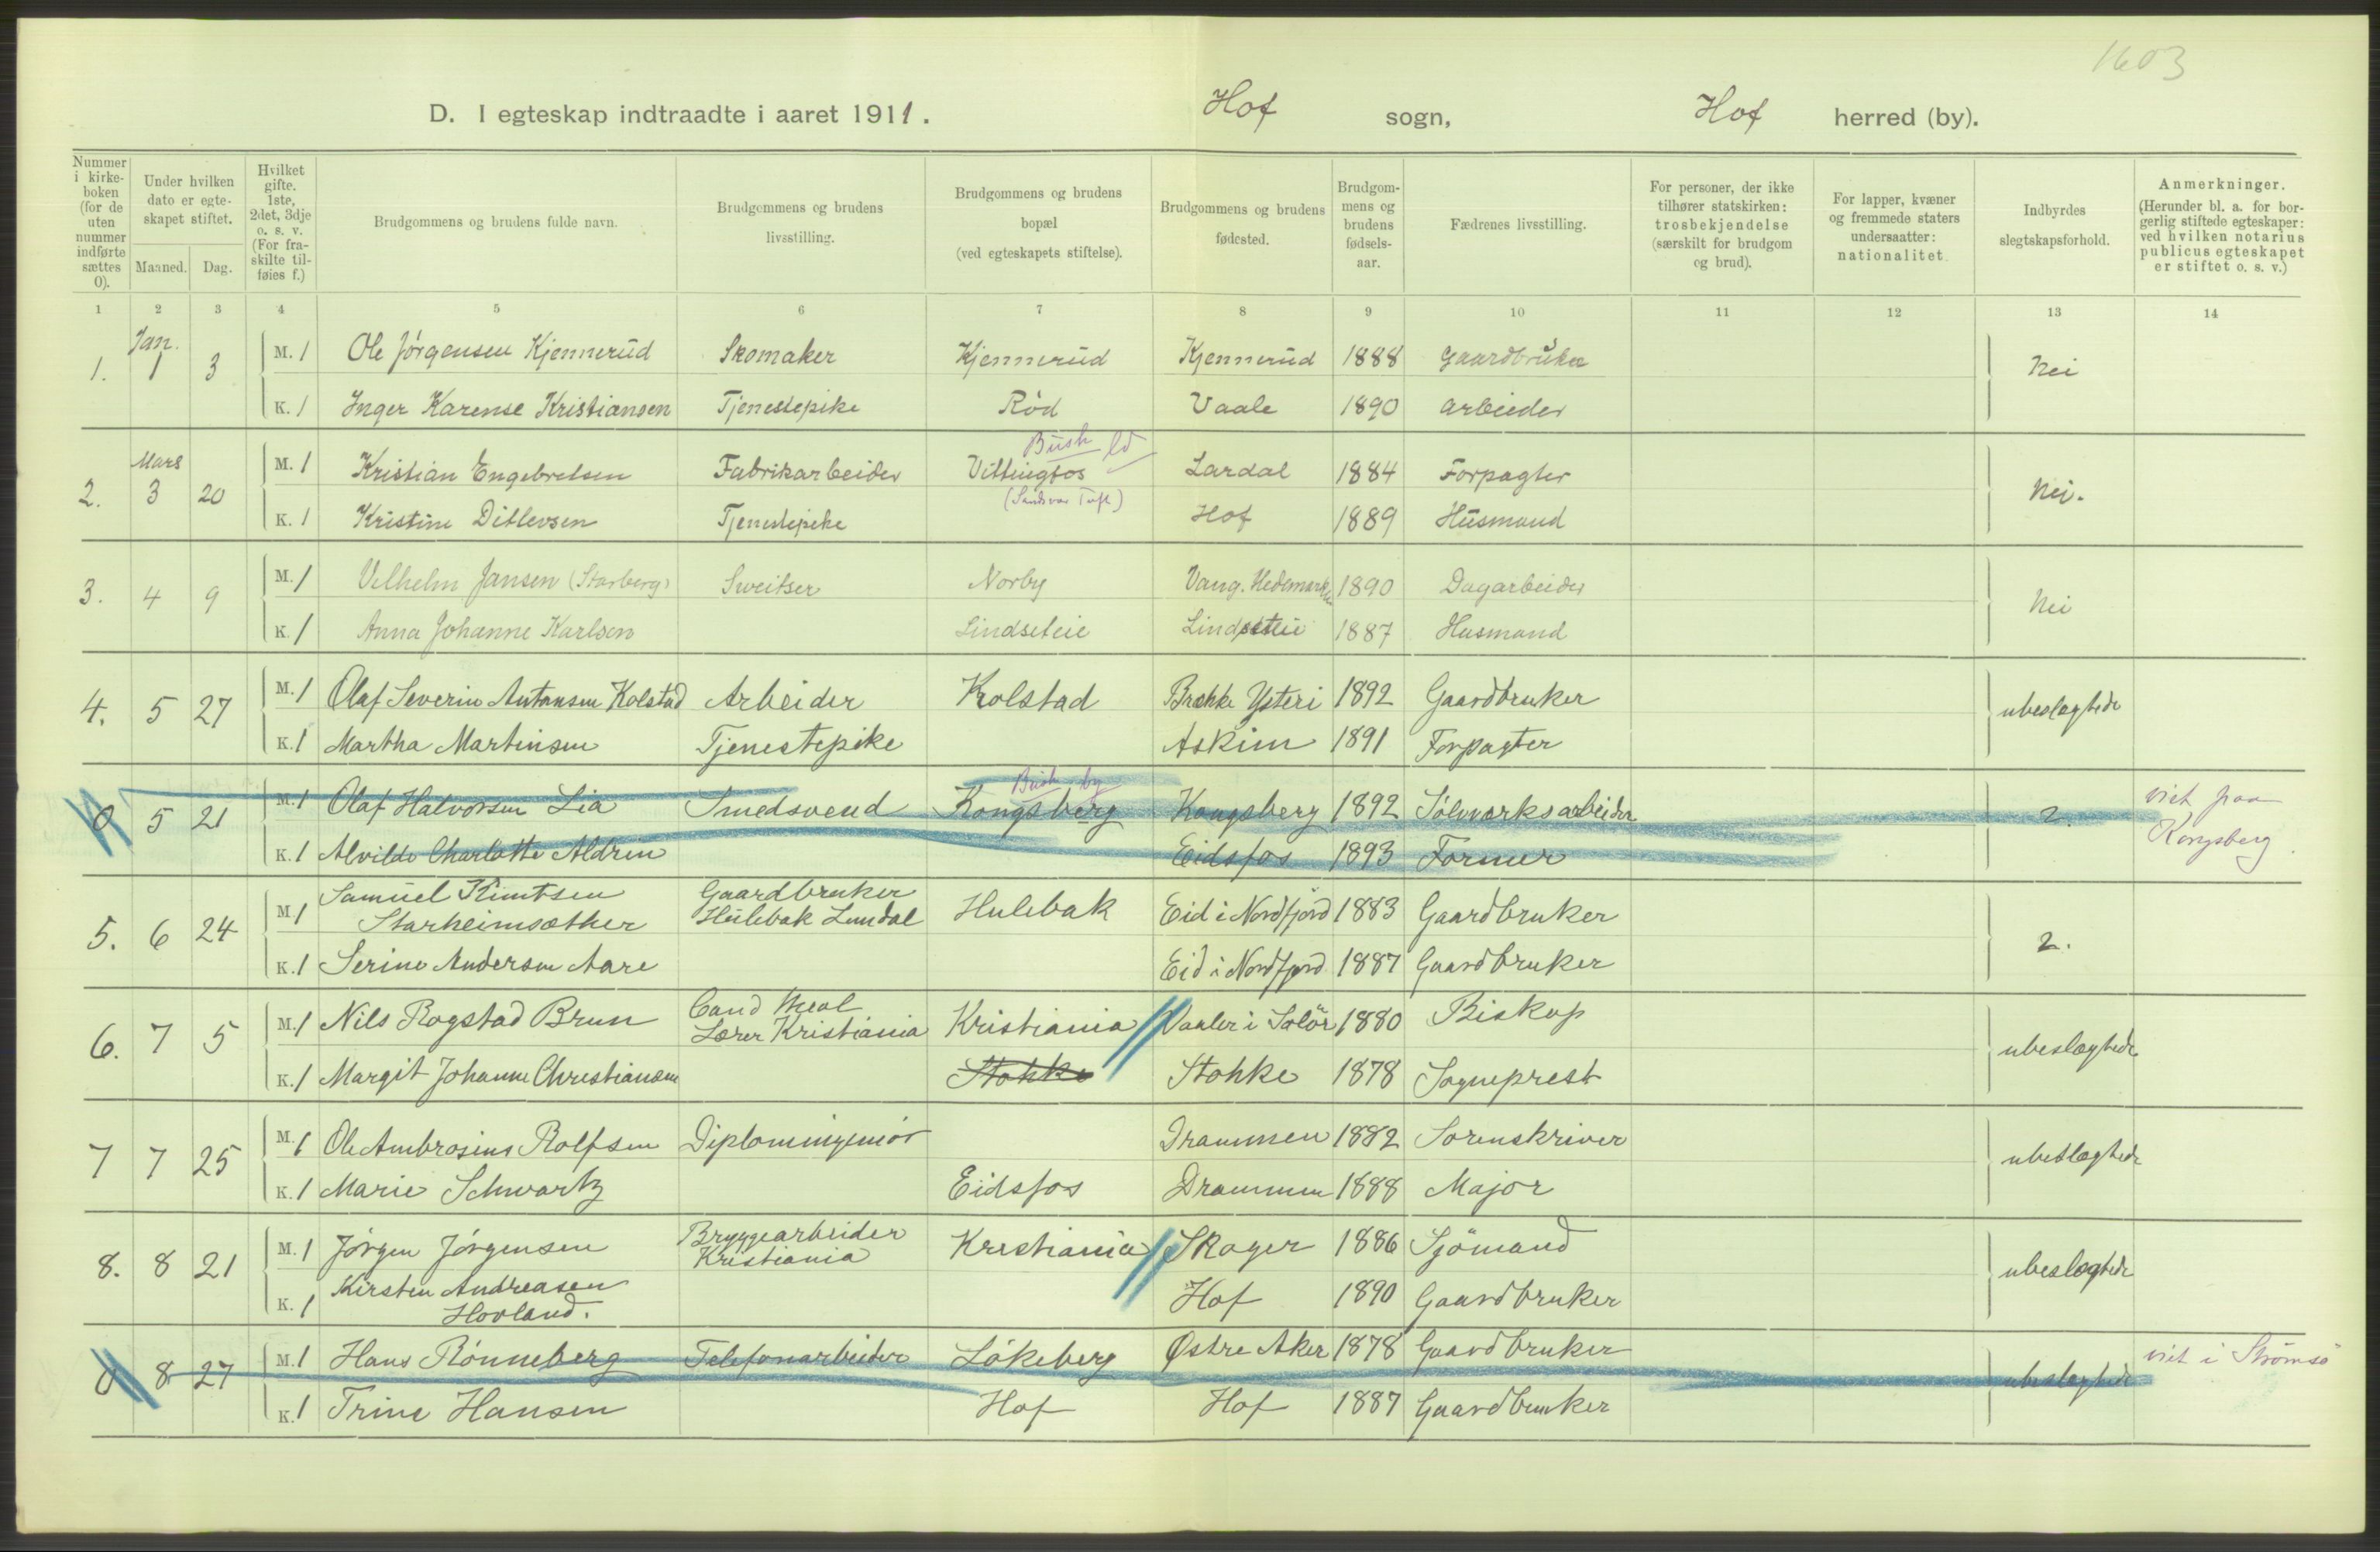 1603
D. I egteskap indtraadte i aaret 1911. Hof sogn, Hof herred (by).
Nummer i kirke-boken (for de uten nummer indførte sættes 0).
Under hvilken dato er egte-skapet stiftet.
Maaned. Dag.
Hvilket gifte. 1ste, 2det, 3dje o. s. v. (For fra-skilte til-føies f.)
Brudgommens og brudens fulde navn.
Brudgommens og brudens livsstilling.
Brudgommens og brudens bopæl (ved egteskapets stiftelse).
Brudgommens og brudens fødested.
Brudgom-mens og brudens fødsels-aar.
Fædrenes livsstilling.
For personer, der ikke tilhører statskirken: trosbekjendelse (særskilt for brudgom og brud).
For lapper, kvæner og fremmede staters undersaatter: nationalitet.
Indbyrdes slegtskapsforhold.
Anmerkninger. (Herunder bl. a. for bor-gerlig stiftede egteskaper: ved hvilken notarius publicus egteskapet er stiftet o. s. v.)
1 2 3 4 5 6 7 8 9 10 11 12 13 14
Jan.
1. 1 3 M. 1 Ole Jørgensen Kjennerud Skomaker Kjennerud Kjennerud 1888 Gaardbruker Nei
K. 1 Inger Karense Kristiansen Tjenestepike Rød Vaale 1890 Arbeider
Mars Busk ld
2. 3 20 M. 1 Kristian Engebretsen Fabrikarbeider Vittingfos Lardal 1884 Forpagter Nei.
K. 1 Kristine Ditlevsen Tjenestepike Hof 1889 Husmand
3. 4 9 M. 1 Vilhelm Jansen (Starberg) Sweitser Norby Vang. Hedemarken 1890 Dagarbeider Nei
K. 1 Anna Johanne Karlsen Lindseteie Lindseteie 1887 Husmand
4. 5 27 M. 1 Olaf Severin Antonsen Kolstad Arbeider Kolstad Brekke Ysteri 1892 Gaardbruker ubeslægtede
K. 1 Martha Martinsen Tjenestepike Askim 1891 Forpagter
Busk by
0 5 21 M. 1 Olaf Halvorsen Lia Smedsvend Kongsberg Kongsberg 1892 Sølvverksarbeider 2. viet paa
K. 1 Alvilde Charlotte Aldrin Eidsfos 1893 Former Kongsberg.
5. 6 24 M. 1 Samuel Knutsen Starheimsæther Gaardbruker Hulebak Lundal Hulebak Eid i Nordfjord 1883 Gaardbruker 2.
K. 1 Serine Andersen Aare Eid i Nordfjord 1887 Gaardbruker
6. 7 5 M. 1 Nils Rogstad Brun Cand Lærer Kristiania Kristiania Vaaler i Solør 1880 Biskop ubeslægtede
K. 1 Margit Johanne Christiansen Stokke Stokke 1878 Sogneprest
7 7 25 M. 1 Ole Ambrosius Rolfsen Diplomingeniør Drammen 1882 Sorenskriver ubeslægtede
K. 1 Marie Schwartz Eidsfos Drammen 1888 Major
8. 8 21 M. 1 Jørgen Jørgensen Bryggearbeider Kristiania Kristiania Skoger 1886 Sjømand ubeslægtede
K. 1 Kirsten Andreasen Hovland. Hof 1890 Gaardbruker
0 8 27 M. 1 Hans Rønneberg Telefonarbeider Løkeberg Østre Aker 1878 Gaardbruker ubeslægtede viet i Strømsø
K. 1 Trine Hansen Hof Hof 1887 Gaardbruker